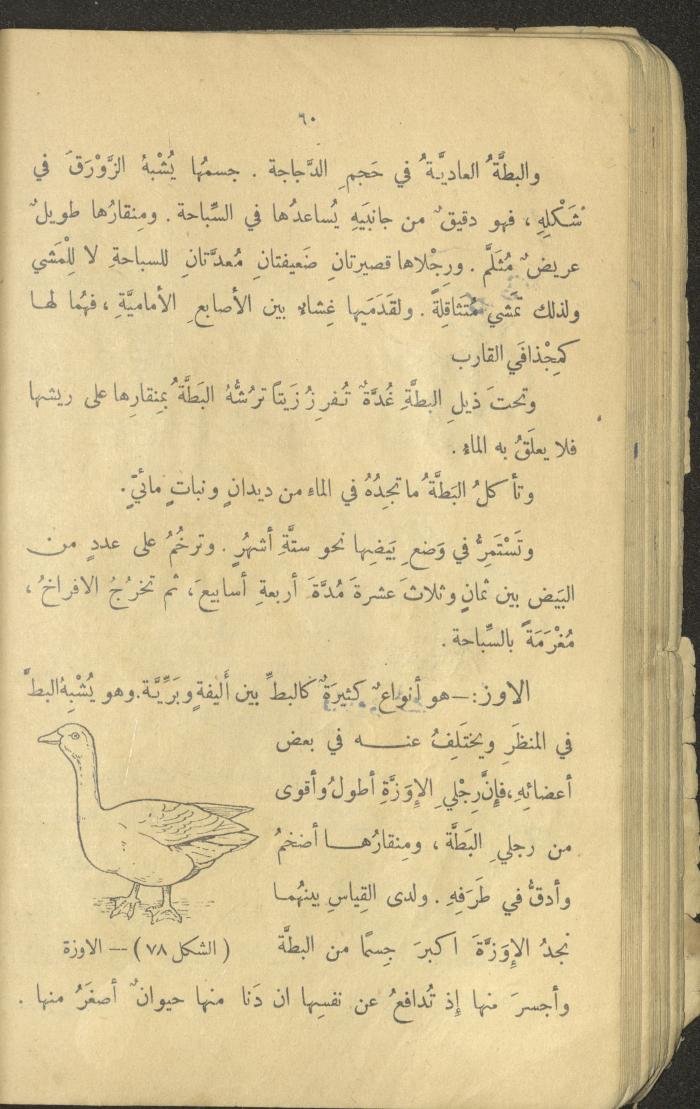 ٦٠
والبطَّةُ العاديَّةُ في حَجمِ الدَّجاجة . جسمُها يُشْبهُ الزَّوْرَقَ في
شَكْلِهِ ، فهو دقيقٌ من جانبَيهِ يُساعدُها في السِّباحة . ومِنقارُها طويلٌ
عريضٌ مُثَلَّم . ورِجْلاها قصيرتانِ ضَعيفتانِ مُعدَّتانِ للسباحةِ لا لِلْمَشي
ولذلك تَمْشي مُتَثاقِلةً . ولقَدَمَيها غِشاء بين الأصابعِ الأماميَّةِ ، فهُما لها
كمِجْذافَي القارب
وتحتَ ذيلِ البطَّةِ غُدَّةٌ تُفرِزُ زَيتًا ترُشُّهُ البَطَّةُ بمِنقارِها على ريشها
فلا يعلَقُ به الماء .
وتأكلُ البَطَّةُ ما تجِدُهُ في الماء من ديدانٍ ونباتٍ مائيٍّ.
وتَسْتَمِرُّ في وَضعِ بَيضِها نحو ستَّةِ أشهُرٍ . وترخُمُ على عددٍ من
البَيض بين ثمانٍ وثلاثَ عشرةَ مُدَّةَ أربعةِ أسابيعَ، ثم تخرُجُ الافراخُ ،
مُغْرَمَةً بالسِّباحة .
الاوز :ــ هو أنواعٌ كثيرَةٌ كالبطِّ بين أَليفةٍ وبَرِّيَّة. وهو يُشْبِهُ البطَّ
في المنظَرِ ويختَلِفُ عنـه في بعض
أعضائِهِ، فإِنَّ رِجْلي الإِوَزَّةِ أطولُ وأقوى
من رجلي البَطَّة ، ومِنقارُهـا أضخمُ
وأدقُّ في طَرَفِهِ . ولدى القِياسِ بينهُما
نجدُ الإِوَزَّةَ اكبرَ جِسمًا من البطَّة
( الشكل ٧٨ ) — الاوزة
وأجسرَ منها إِذ تُدافعُ عن نفسِها ان دَنا منها حيوانٌ أصغَرُ منها .